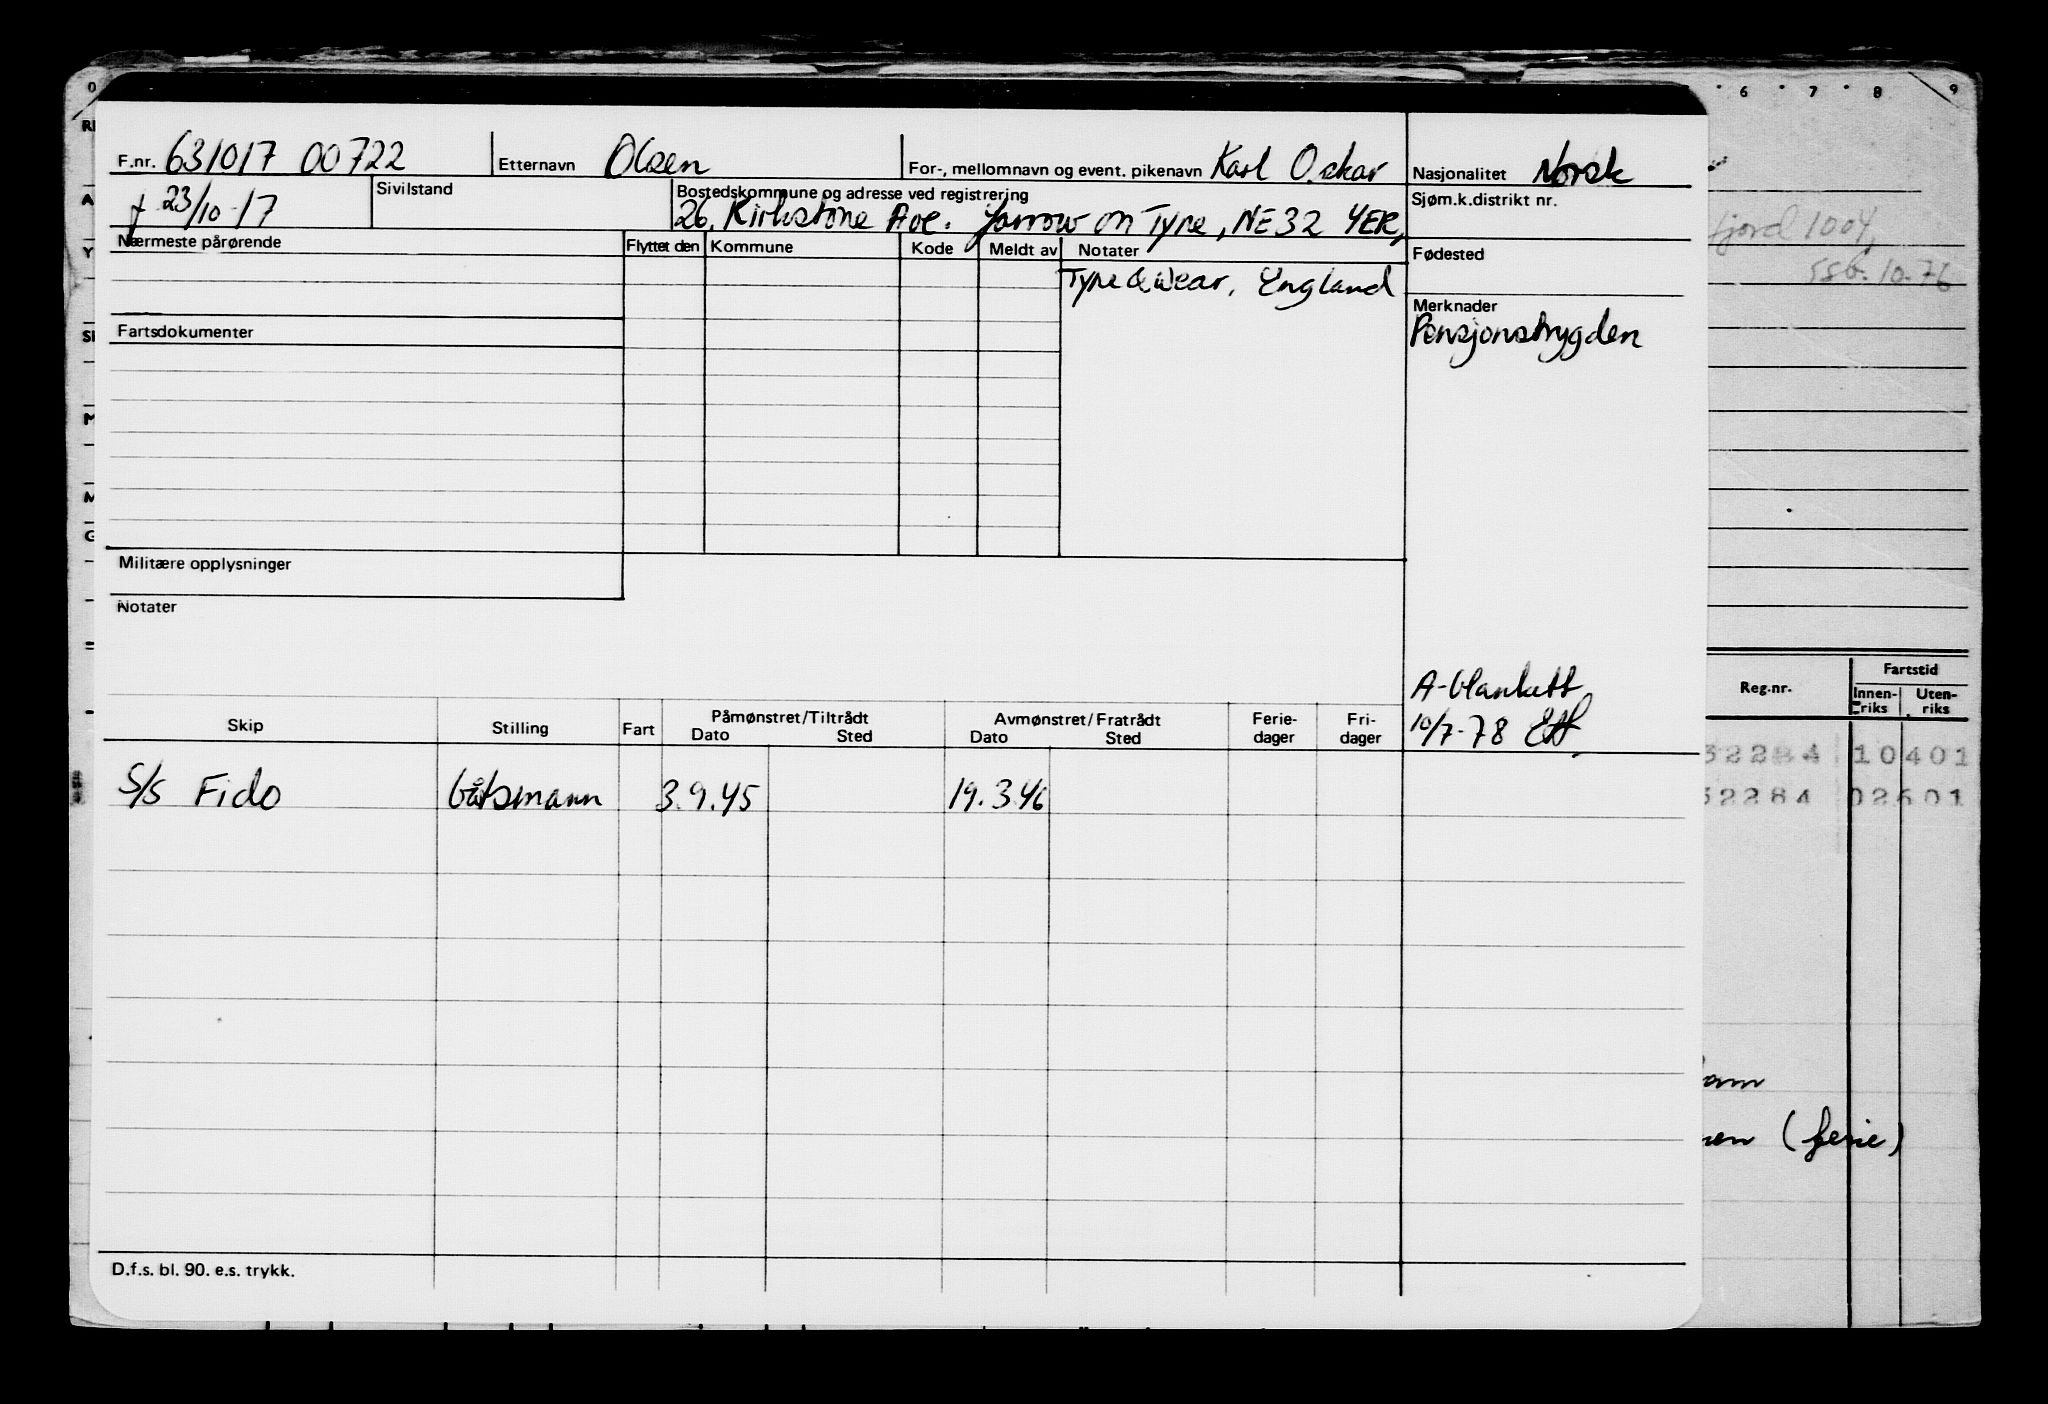 0 6 7 8 9
F.nr. 631017 00722 Etternavn Olsen For-, mellomnavn og event. pikenavn Karl Oskar Nasjonalitet Norsk
f 23/10-17 Sivilstand Bostedskommune og adresse ved registrering Sjøm.k.distrikt nr.
26, Kirkstone Ave. Jarrow on Tyne, NE32 YER,
fjord 1004,
Nærmeste pårørende Flyttet den Kommune Kode Meldt av Notater Fødested
Tyne & Wear, England
10.76
Merknader
Fartsdokumenter Pensjonstrygden
Militære opplysninger
Notater
A-blankett
Reg.nr. Fartstid
Innenriks Utenriks
Skip Stilling Fart Påmønstret/Tiltrådt Avmønstret/Fratrådt Ferie- Fri-
Dato Sted Dato Sted dager dager 10/7-78
32284 10401
S/S Fido båtsmann 3.9.45 19.3.46
52284 02601
(ferie)
D.f.s. bl. 90. e.s. trykk.